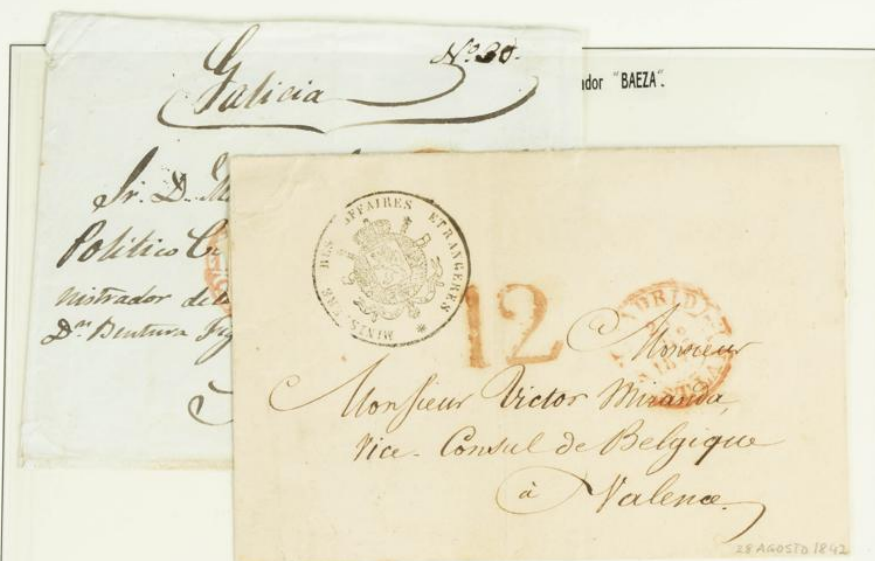 Nº 30.
Galicia
ador "BAEZA".
Sr. D.
Politico
nistrador de
Dn. Bentura
MINISTRE DES AFFAIRES ETRANGERES
12
MADRID
Monsieur
Monsieur Victor Miranda,
Vice-Consul de Belgique
à Valence
28 AGOSTO 1842